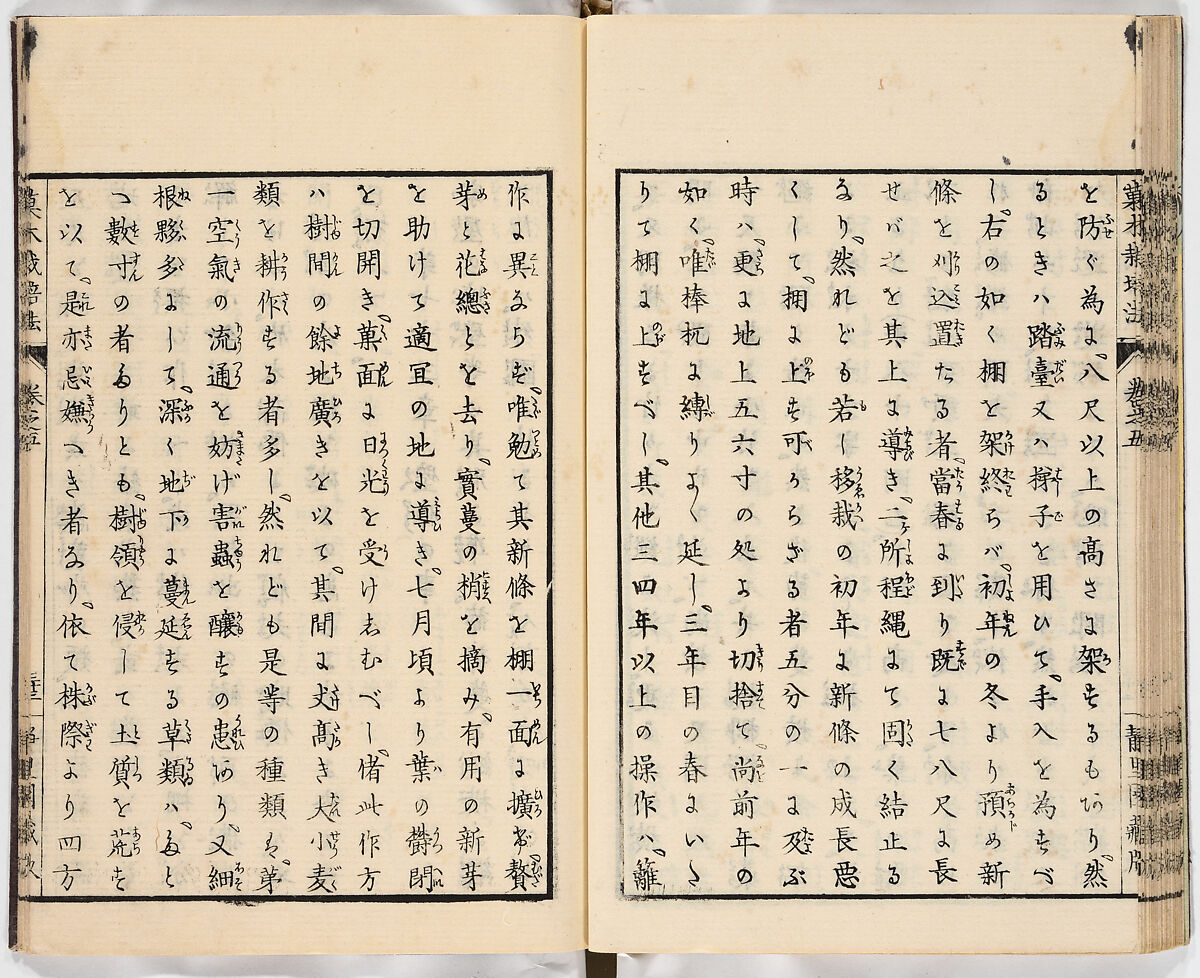 を防ぐ為に、八尺以上の高さに架するもあり、然
るときハ踏臺又ハ梯子を用ひて、手入を為すべ
し、右の如く棚を架終らバ、初年の冬より預め新
條を刈込置たる者、當春に到り既に七八尺に長
せバ之を其上に導き、二所程縄にて固く結止る
なり、然れども若し移栽の初年に新條の成長悪
くして、棚に上す可からざる者五分の一に及ぶ
時ハ、更に地上五六寸の処より切捨て、尚前年の
如く、唯棒杭に縛りよく延し、三年目の春にいた
りて棚に上すべし、其他三四年以上の操作ハ、籬
菓木栽培法
卷之五
靜里園藏版
作に異ならず、唯勉て其新條を棚一面に擴布、贅
芽と花總とを去り、實蔓の梢を摘み、有用の新芽
を助けて適宜の地に導き、七月頃より葉の欝閉
を切開き菓面に日光を受けしむべし、偖此作方
ハ樹間の餘地廣きを以て、其間に丈髙き大小麦
類を耕作する者多し、然れども是等の種類ハ、第
一空氣の流通を妨げ害蟲を釀すの患あり、又細
根夥多にして、深く地下に蔓延する草類ハ、たと
へ數寸の者たりとも、樹領を侵して土質を荒す
を以て、是亦忌嫌べき者なり、依て株際より四方
菓木栽培法
卷之五